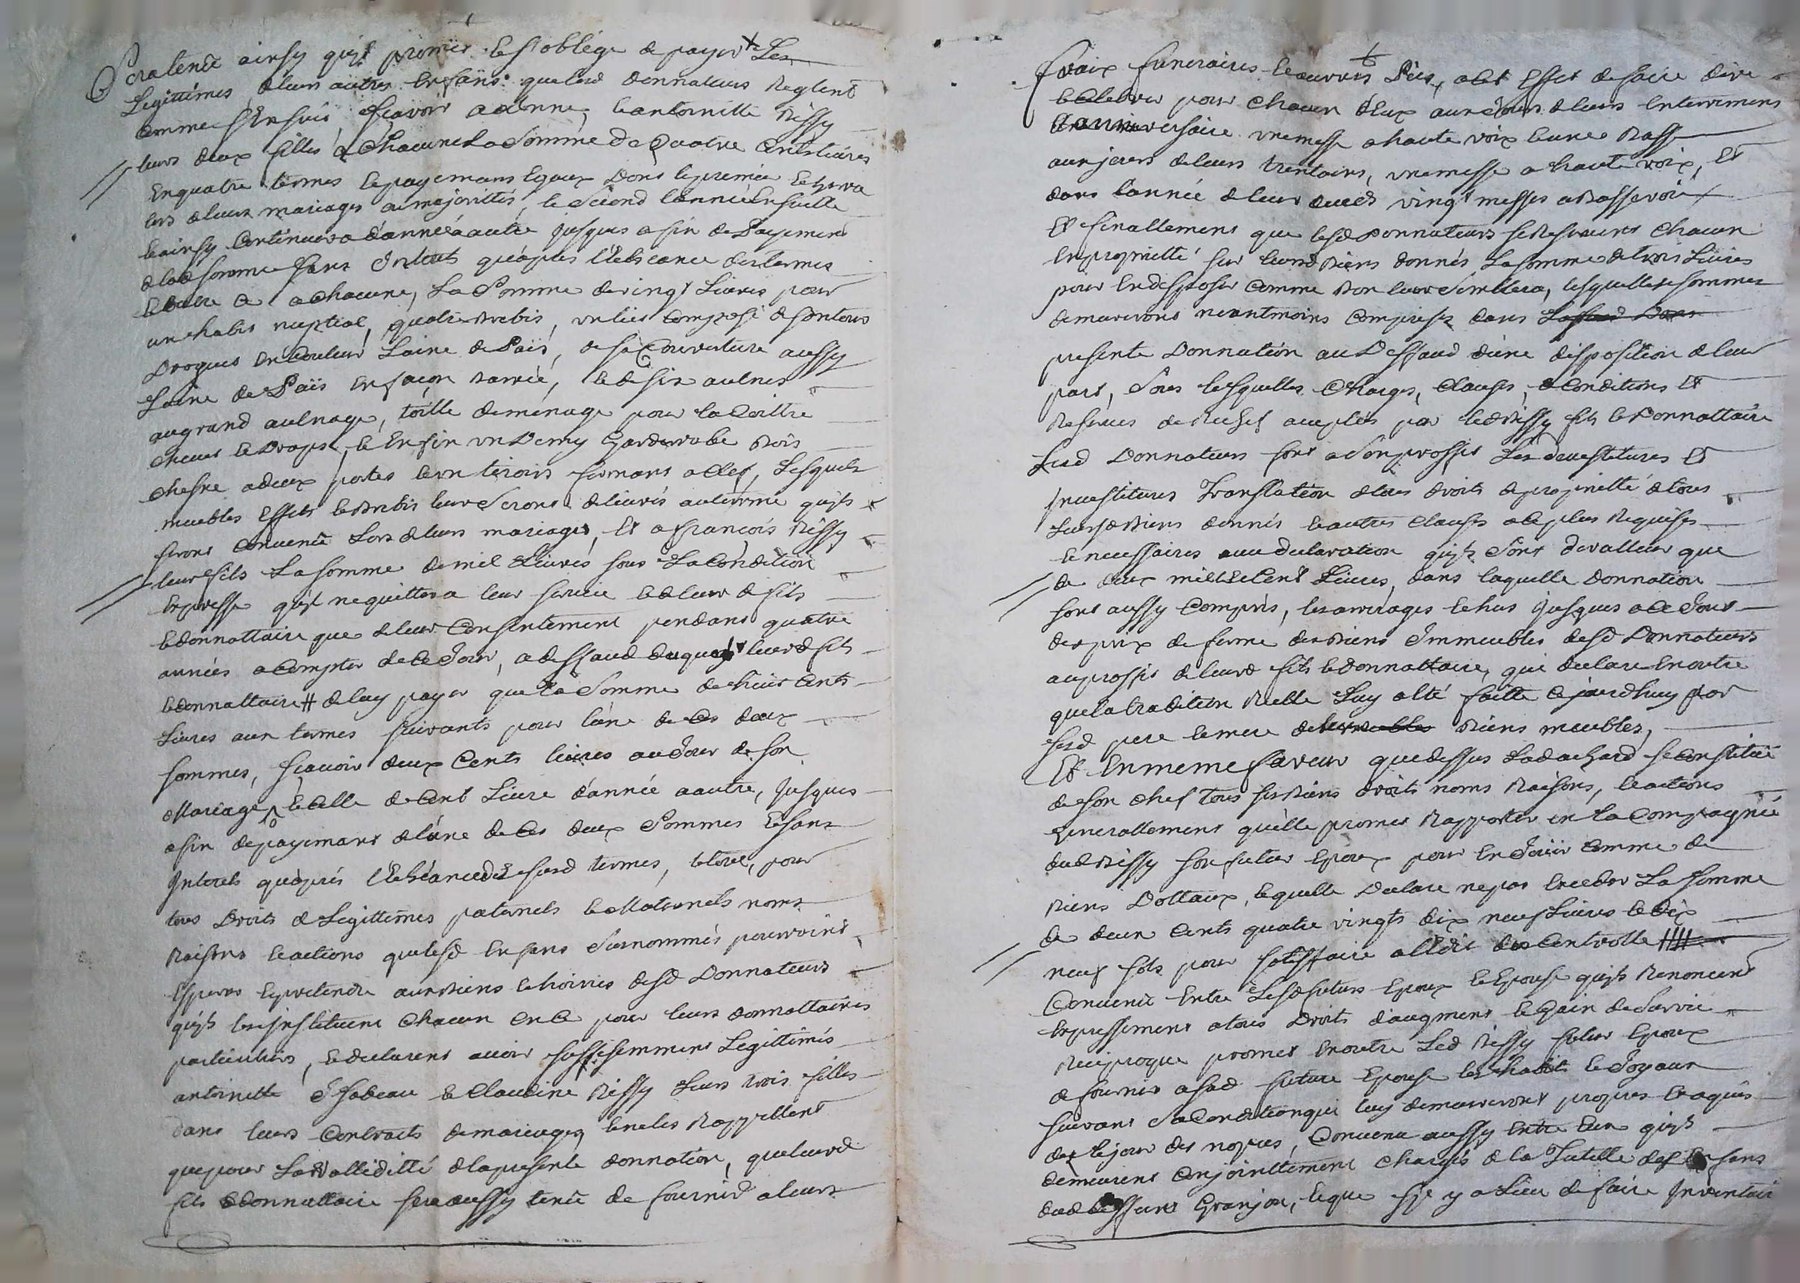 ainsy qu'il promet et s'oblige de payer Les
Legittimes a leurs autres Enfans que lesd donnateurs Reglent
comme s'Ensuit sçavoir a etienne, et antoinette Rissy
leurs deux filles a Chacune La Somme De Quatre Cents livres
En quatre termes et payemans Egaux Dont le premier Echerra
lors de leurs mariages ou majorittés, le Second L'année Ensuitte
et ainsy Continuera d'année a autre jusques a fin de Payement
de lad somme sans Interets qu'apres l'Echeance des termes
Et outre Ce a Chacune, La Somme de vingt Livres pour
un habit nuptial, quatre Brebis, un lict Composé de
Drogues En Couleur Laine de Païs, de sa Couverture aussy
Laine de Païs En façon, et de six aulnes
au grand aulnage, toille de ménage pour la Coittre
Chevet et Draps, et Enfin un Demy Garderobe Bois
Chesne a deux portes et un tiroir fermans a Clef, Lesquels
meubles Effets et Brebis leur Seront delivrés au terme qu'ils
seront Convenu Lors de leurs mariages, Et a françois Rissy
leur fils La somme de mil Livres sous La Condition
Expresse qu'il ne quittera leur service et de leur d fils
et donnattaire que de leur Consentement pendant quatre
années a Compter de Ce Jour, a deffaud duquel leurd fils
et donnattaire # de luy payer que La Somme de huit Cents
Livres aux termes suivants pour l'une de Ces deux
sommes, sçavoir deux Cents livres au Jour de son
Mariage, et Celle de Cent Livre d'année a autre, Jusques
a fin de payemans de l'une de Ces deux Sommes Et sans
Interets qu'apres l'Echeance desd termes, et tout, pour
tous Droits de Legittimes paternels et Maternels noms
Raisons et actions que lesd Enfans Surnommés pourroint
Esperer et pretendre aux Biens et hoiries desd Donnateurs
qu'ils les instituent Chacun en Ce pour leurs donnattaires
particuliers, et declarent avoir suffisemment Legittimés
antoinette Isabeau et Claudine Rissy Leurs trois filles
dans leurs Contrats de mariages, et ne les Rappellent
que pour La validditté de la presente donnation, que leurd
fils et donnattaire sera aussy tenu de fournir a leurs
fraix funeraires et œuvres Pies, a Cet Effet de faire dire
et Celebrer pour Chacun d'Eux aux Jours de leurs Enterremens
Et anniversaire une messe a haute voix et une Basse
aux jours de leurs trentains, une messe a haute voix, Et
dans l'année de leur deced vingt messes a Basse voix
Et finallement que lesd Donnateurs se Reservent Chacun
En propriette sur leursd Biens donnés La somme de trois Livres
pour En disposer Comme Bon leur Semblera, lesquelles sommes
demeureront neantmoins Comprises dans
presente Donnation au Deffaud d'une disposition de leur
part, Sous lesquelles Charges, Clauses, et Conditions Et
Reserves de Rechef acceptés par led Rissy fils et Donnattaire
Lesd Donnateurs font a Son proffit Les devestitures Et
Investitures Translation de tous droits de proprietté de tous
Leursd Biens donnés et autres Clauses a Ce plus Requises
et necessaires avec declaration qu'ils Sont de valleur que
de deux mille Cent Livres, dans laquelle donnation
sont aussy Compris, les arrerages Echus jusques a Ce Jour
des prix de ferme des Biens Immeubles desd Donnateurs
au proffit de leurd fils et donnattaire, qui declare En outre
que la tradition Reelle Luy a Eté faitte Ce jourdhuy par
sesd pere et mere de Biens meubles,
Et En meme faveur que dessus Lad achard se Constitue
de son Chef tous ses Biens droits noms Raisons, et actions
generallement qu'elle promet Rapporter en La Compagnie
dud Rissy son futur Epoux pour En Jouir Comme de
Biens Dottaux, lequelle Declare ne pas Exceder La Somme
de deux Cents quatre vingts dix neuf Livres et dix
neuf sols pour satisfaire a l'Edit du Controlle
Convenu Entre Lesd futurs Epoux et Epouse qu'ils Renoncent
Expressement a tous Droits d'augment et Gain de Survie
Reciproque promet En outre Led Rissy futur Epoux
de fournir a sad future Epouse les habits et Joyaux
suivant sa Condition qui luy demeureront propres et acquis
des le jour des nopces, Convenu aussy Entre Eux qu'ils
demeurent Conjointtement Chargés de la Tutelle des Enfans
dud deffunt Granjon, et que s'il y a Lieu de faire Inventaire